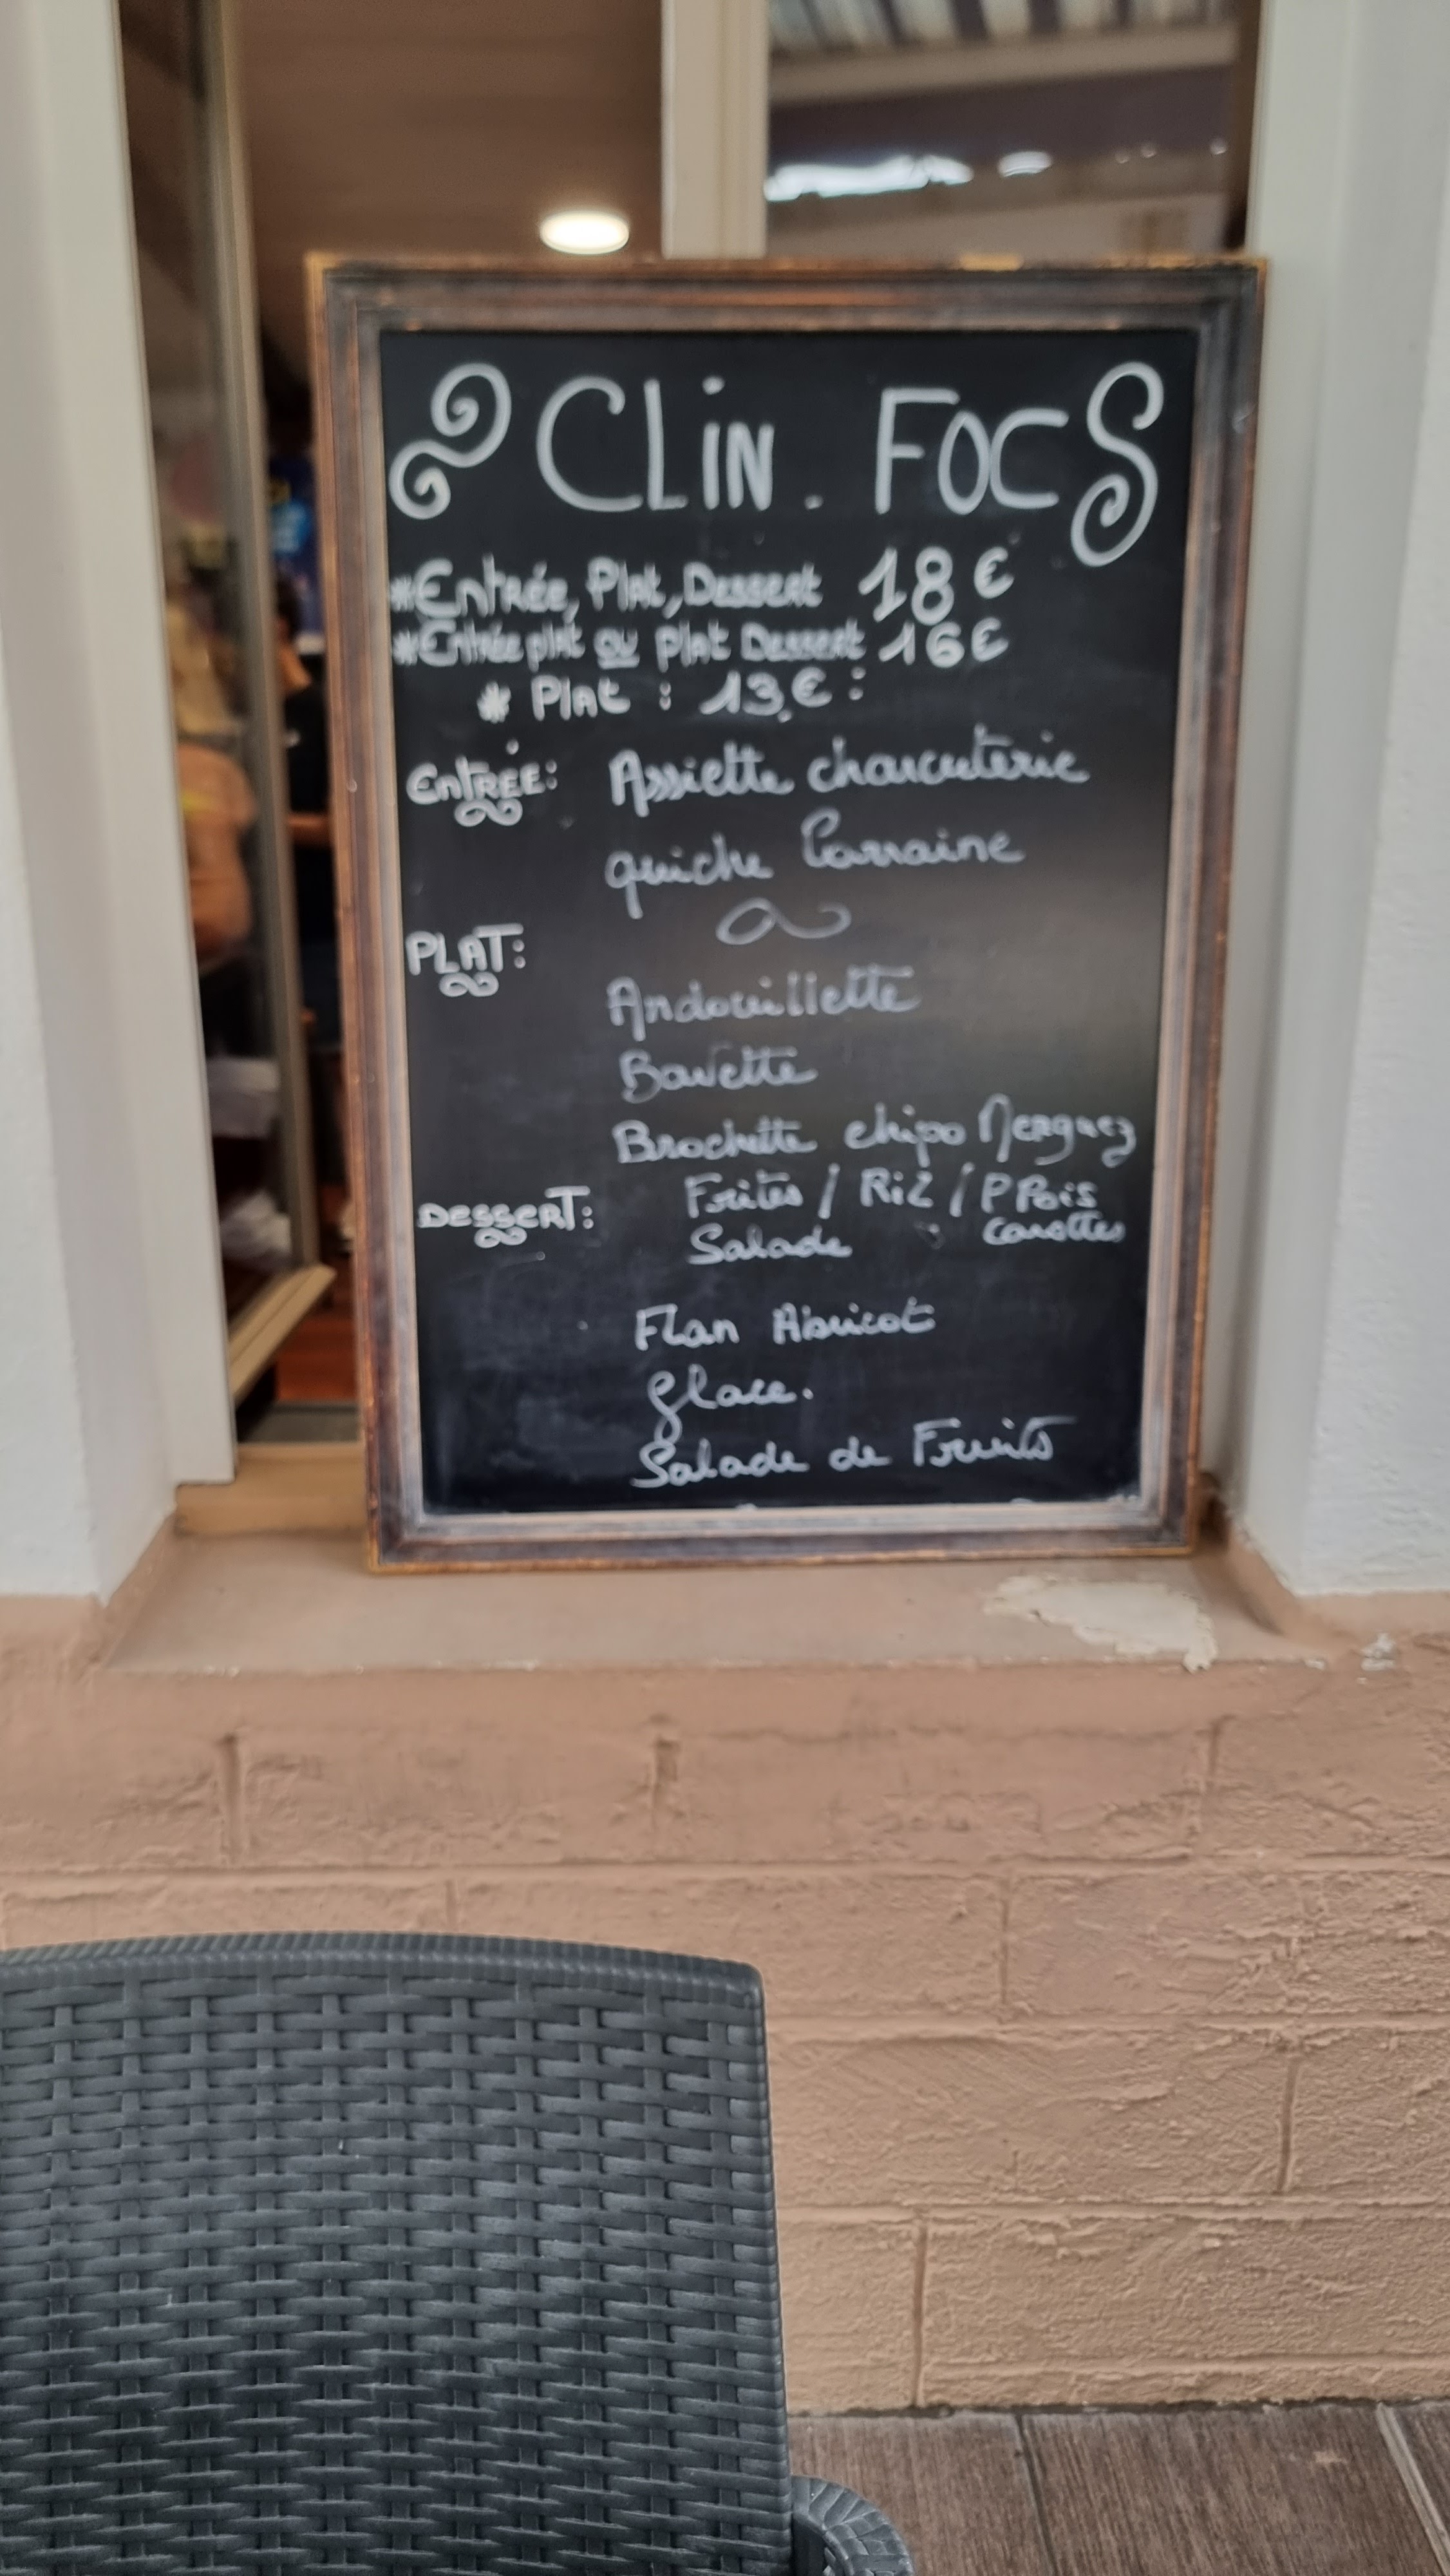 CLiN. FOC
*Entrée, Plat, Dessert 18€
*Entrée plat ou plat Dessert 16€
* Plat : 13€:
ENTRÉE: Assiette charcuterie
quiche Lorraine
PLAT:
Andouillette
Bavette
Brochette chipo Merguez
Frites / Riz / P Pois
carottes
Salade
DESSERT:
Flan Abricot
glace.
Salade de Fruits